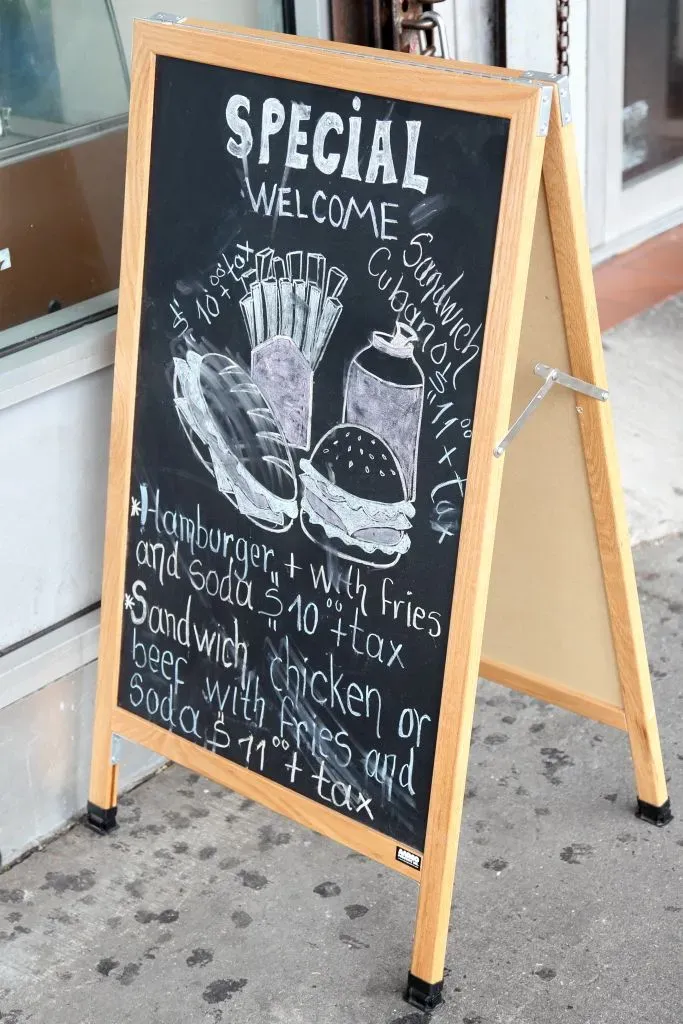 SPECIAL
WELCOME
$ 10⁰⁰ + tax
Sandwich
Cubano
$ 11⁰⁰ + tax
*Hamburger + with fries
and soda $ 10⁰⁰ + tax
*Sandwich, chicken or
beef with fries and
soda $ 11⁰⁰ + tax